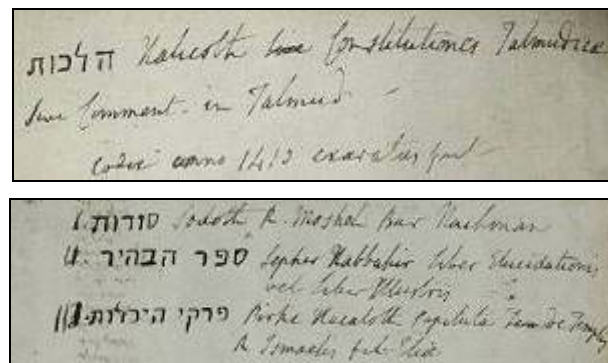 הלכות Halicoth seu Constitutiones Talmudicae
seu Comment. in Talmud
Codex anno 1412 exaratus fuit
I. סודות Sodoth R. Mosheh Bar Nachman
II. ספר הבהיר Sepher Habbahir liber Elucidationis
vel liber Illustris
III. פרקי היכלות Pirke Hecaloth Capitula
R Ismaelis fil.